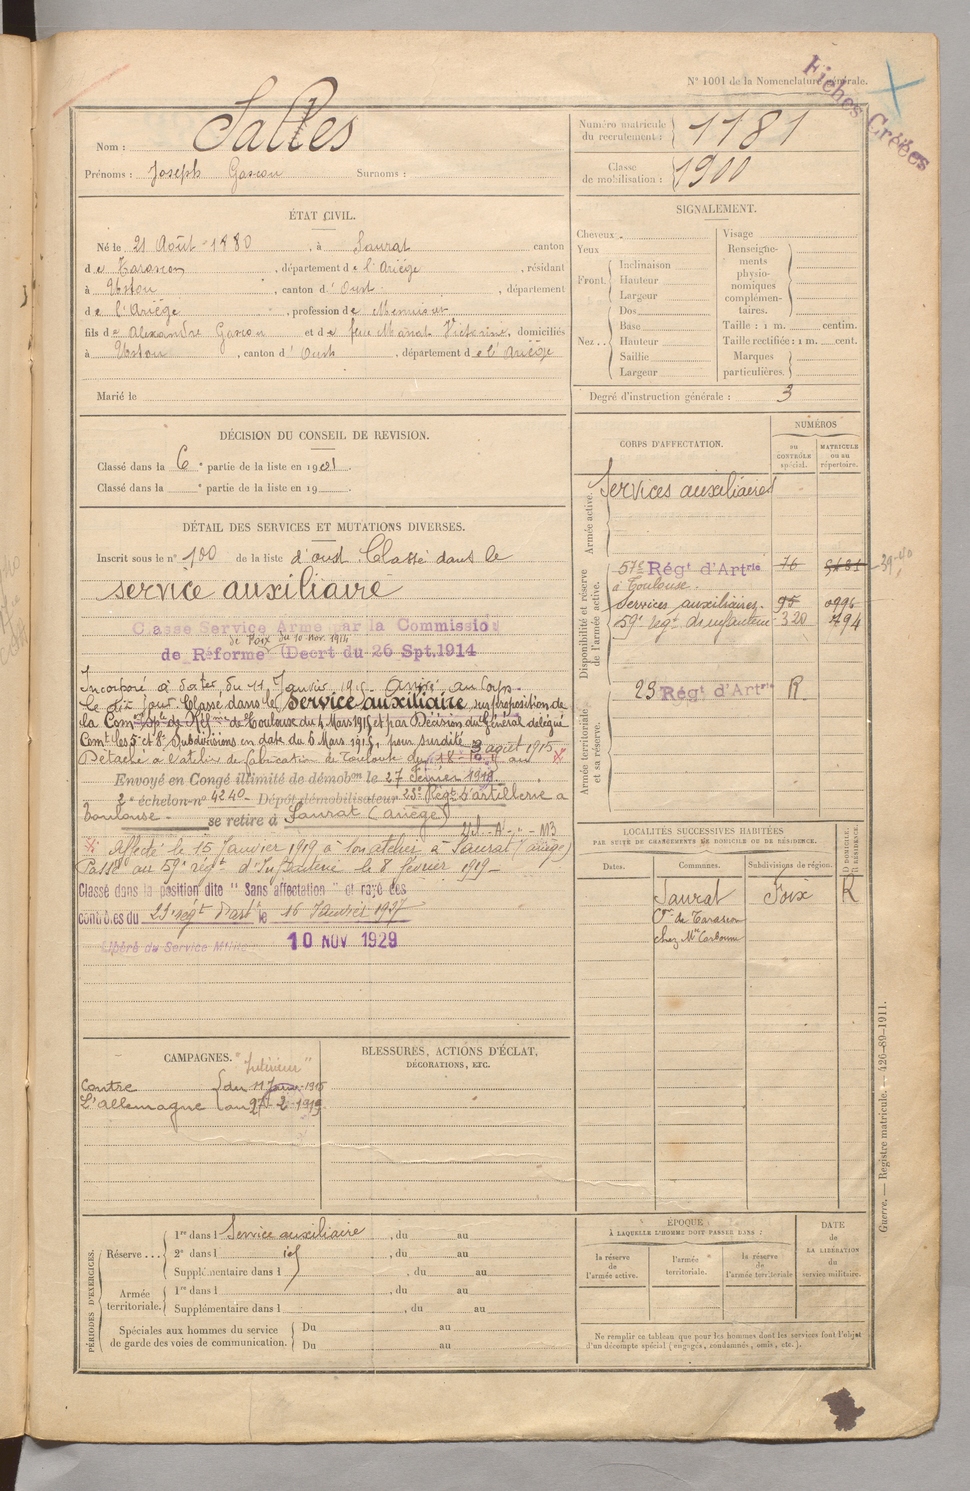 N° 1001 de la Nomenclature générale.
Fiches Créées
Nom : Salles
Prénoms : Joseph Gascon Surnoms :
Numéro matricule du recrutement : 1181
Classe de mobilisation : 1900
ÉTAT CIVIL.
Né le 21 Août 1880, à Saurat canton
de Tarascon, département de l'Ariège, résidant
à Ustou, canton d'Oust, département
de l'Ariège, profession de Menuisier
fils de Alexandre Gascon et de feue Marat Victorine, domiciliés
à Ustou, canton d'Oust, département de l'Ariège
Marié le
SIGNALEMENT.
Cheveux
Yeux
Front. Inclinaison
Hauteur
Largeur
Nez.. Dos
Base
Hauteur
Saillie
Largeur
Visage
Renseignements physionomiques complémentaires.
Taille : 1 m. centim.
Taille rectifiée : 1 m. cent.
Marques particulières.
Degré d'instruction générale : 3
DÉCISION DU CONSEIL DE REVISION.
Classé dans la 6e partie de la liste en 1901.
Classé dans la e partie de la liste en 19
DÉTAIL DES SERVICES ET MUTATIONS DIVERSES.
Inscrit sous le n° 100 de la liste d'oust Classé dans le
service auxiliaire
Classé Service Armé par la Commission
de Foix du 10 nov. 1914
de Réforme (Decrt du 26 Spt.1914
Incorporé à dater du 11 Janvier 1915. Arrivé au Corps
le dix jour. Classé dans le service auxiliaire sur proposition de
la Comon Sple de Réfme de Toulouse du 4 Mars 1915 et par Décision du Général délégué
Comt les 5e et 8e Subdivisions en date du 6 Mars 1915, pour surdité
Détaché à l'atelier de fabrication de Toulouse du 3 août 1915 au
Envoyé en Congé illimité de démobon le 27 Février 1919
2e échelon n° 4240 Dépôt démobilisateur 23e Régt d'artillerie à
Toulouse se retire à Saurat (Ariège)
Affecté le 15 Janvier 1919 à son atelier à Saurat (Ariège)
Passé au 59e régt d'Infanterie le 8 février 1919
Classé dans la position dite "Sans affectation" et rayé des
contrôles du 23 régt d'art le 16 Janvier 1927
Libéré du Service M
10 NOV 1929
CORPS D'AFFECTATION.
NUMÉROS
au CONTRÔLE spécial.
MATRICULE ou au répertoire.
Armée active.
Services auxiliaires
Disponibilité et réserve de l'armée active.
57e Régt d'Artrie 76
à Toulouse.
Services auxiliaires. 95 0996
59e régt d'infanterie 320 794
Armée territoriale et sa réserve.
23 Régt d'Artrie R
LOCALITÉS SUCCESSIVES HABITÉES
PAR SUITE DE CHANGEMENTS DE DOMICILE OU DE RÉSIDENCE.
Dates. Communes. Subdivisions de région. D DOMICILE. R RÉSIDENCE.
Saurat Foix R
Con de Tarascon
CAMPAGNES.
"Intérieur"
Contre du 11 Janv. 1915
L'Allemagne au 27-2-1919
BLESSURES, ACTIONS D'ÉCLAT,
DÉCORATIONS, ETC.
PÉRIODES D'EXERCICES.
Réserve... 1re dans l Service auxiliaire, du au
2e dans l id, du au
Supplémentaire dans l, du au
Armée territoriale. 1re dans l, du au
Supplémentaire dans l, du au
Spéciales aux hommes du service de garde des voies de communication. Du au
Du au
ÉPOQUE
À LAQUELLE L'HOMME DOIT PASSER DANS :
la réserve de l'armée active.
l'armée territoriale.
la réserve de l'armée territoriale
DATE de LA LIBÉRATION du service militaire.
Ne remplir ce tableau que pour les hommes dont les services font l'objet
d'un décompte spécial (engagés, condamnés, omis, etc.).
Guerre. — Registre matricule. — 426-89-1911.